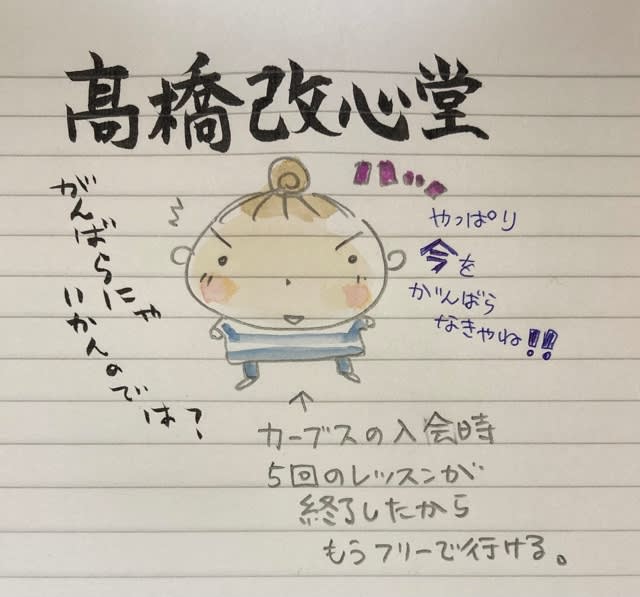 髙橋改心堂
がんばらにゃ
いかんのでは?
やっぱり
今を
がんばら
なきゃね!!
↑
カーブスの入会時
5回のレッスンが
終了したから
もうフリーで行ける。